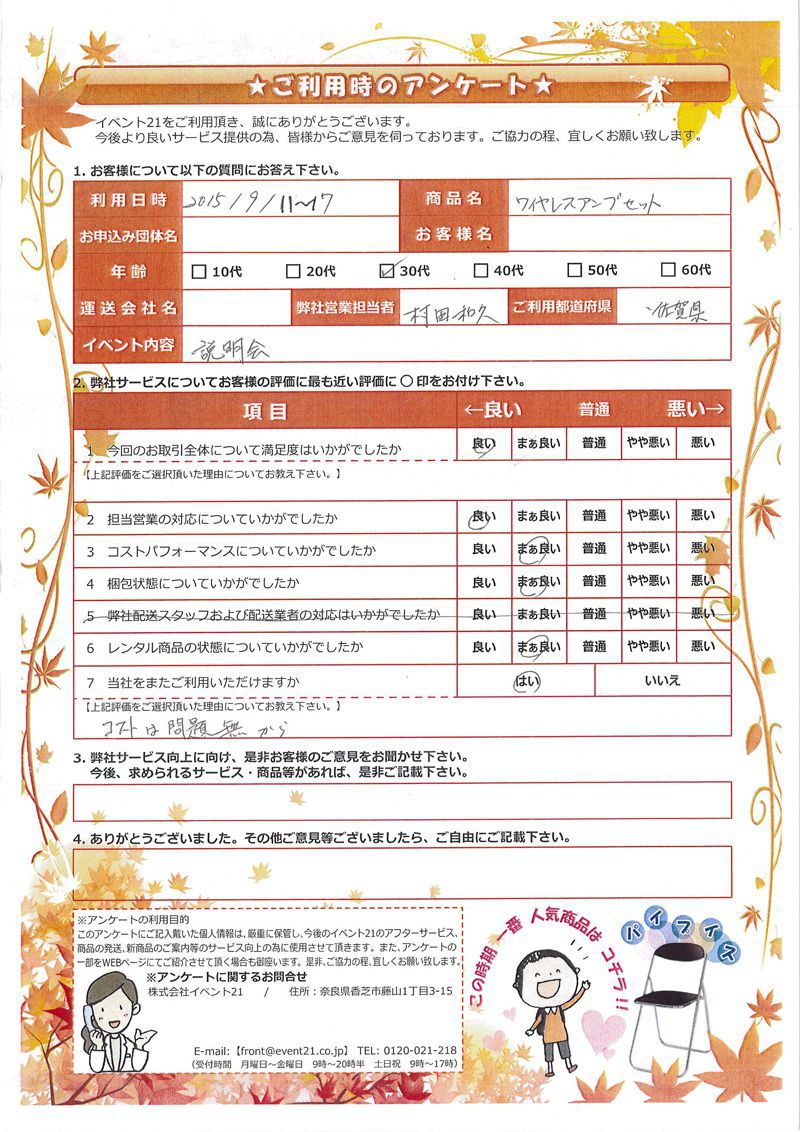 ★ご利用時のアンケート★
イベント21をご利用頂き、誠にありがとうございます。
今後より良いサービス提供の為、皆様からご意見を伺っております。ご協力の程、宜しくお願い致します。
1. お客様について以下の質問にお答え下さい。
利用日時 2015/9/11~17 商品名 ワイヤレスアンプセット
お申込み団体名 お客様名
年齢 10代 20代 30代 40代 50代 60代
運送会社名 弊社営業担当者 村田和久 ご利用都道府県 佐賀県
イベント内容 説明会
2. 弊社サービスについてお客様の評価に最も近い評価に ○ 印をお付け下さい。
項目 ←良い 普通 悪い→
1 今回のお取引全体について満足度はいかがでしたか 良い まぁ良い 普通 やや悪い 悪い
【上記評価をご選択頂いた理由についてお教え下さい。】
2 担当営業の対応についていかがでしたか 良い まぁ良い 普通 やや悪い 悪い
3 コストパフォーマンスについていかがでしたか 良い まぁ良い 普通 やや悪い 悪い
4 梱包状態についていかがでしたか 良い まぁ良い 普通 やや悪い 悪い
5 弊社配送スタッフおよび配送業者の対応はいかがでしたか 良い まぁ良い 普通 やや悪い 悪い
6 レンタル商品の状態についていかがでしたか 良い まぁ良い 普通 やや悪い 悪い
7 当社をまたご利用いただけますか はい いいえ
【上記評価をご選択頂いた理由についてお教え下さい。】
コストは問題無から
3. 弊社サービス向上に向け、是非お客様のご意見をお聞かせ下さい。
今後、求められるサービス・商品等があれば、是非ご記載下さい。
4. ありがとうございました。その他ご意見等ございましたら、ご自由にご記載下さい。
※アンケートの利用目的
このアンケートにご記入戴いた個人情報は、厳重に保管し、今後のイベント21のアフターサービス、
商品の発送、新商品のご案内等のサービス向上の為に使用させて頂きます。また、アンケートの
一部をWEBページにてご紹介させて頂く場合も御座います。是非、ご協力の程、宜しくお願い致します。
※アンケートに関するお問合せ
株式会社イベント21 / 住所：奈良県香芝市藤山1丁目3-15
E-mail:【front@event21.co.jp】 TEL: 0120-021-218
（受付時間 月曜日～金曜日 9時～20時半 土日祝 9時～17時）
この時期 一番 人気商品は コチラ!!
パイプイス